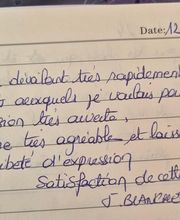 Date: 12
dévoilant très rapidement
auxquels je voulais pa
sion très ouverte,
me très agréable et laiss
liberté d'expression
Satisfaction de cette
J. BLANCHET